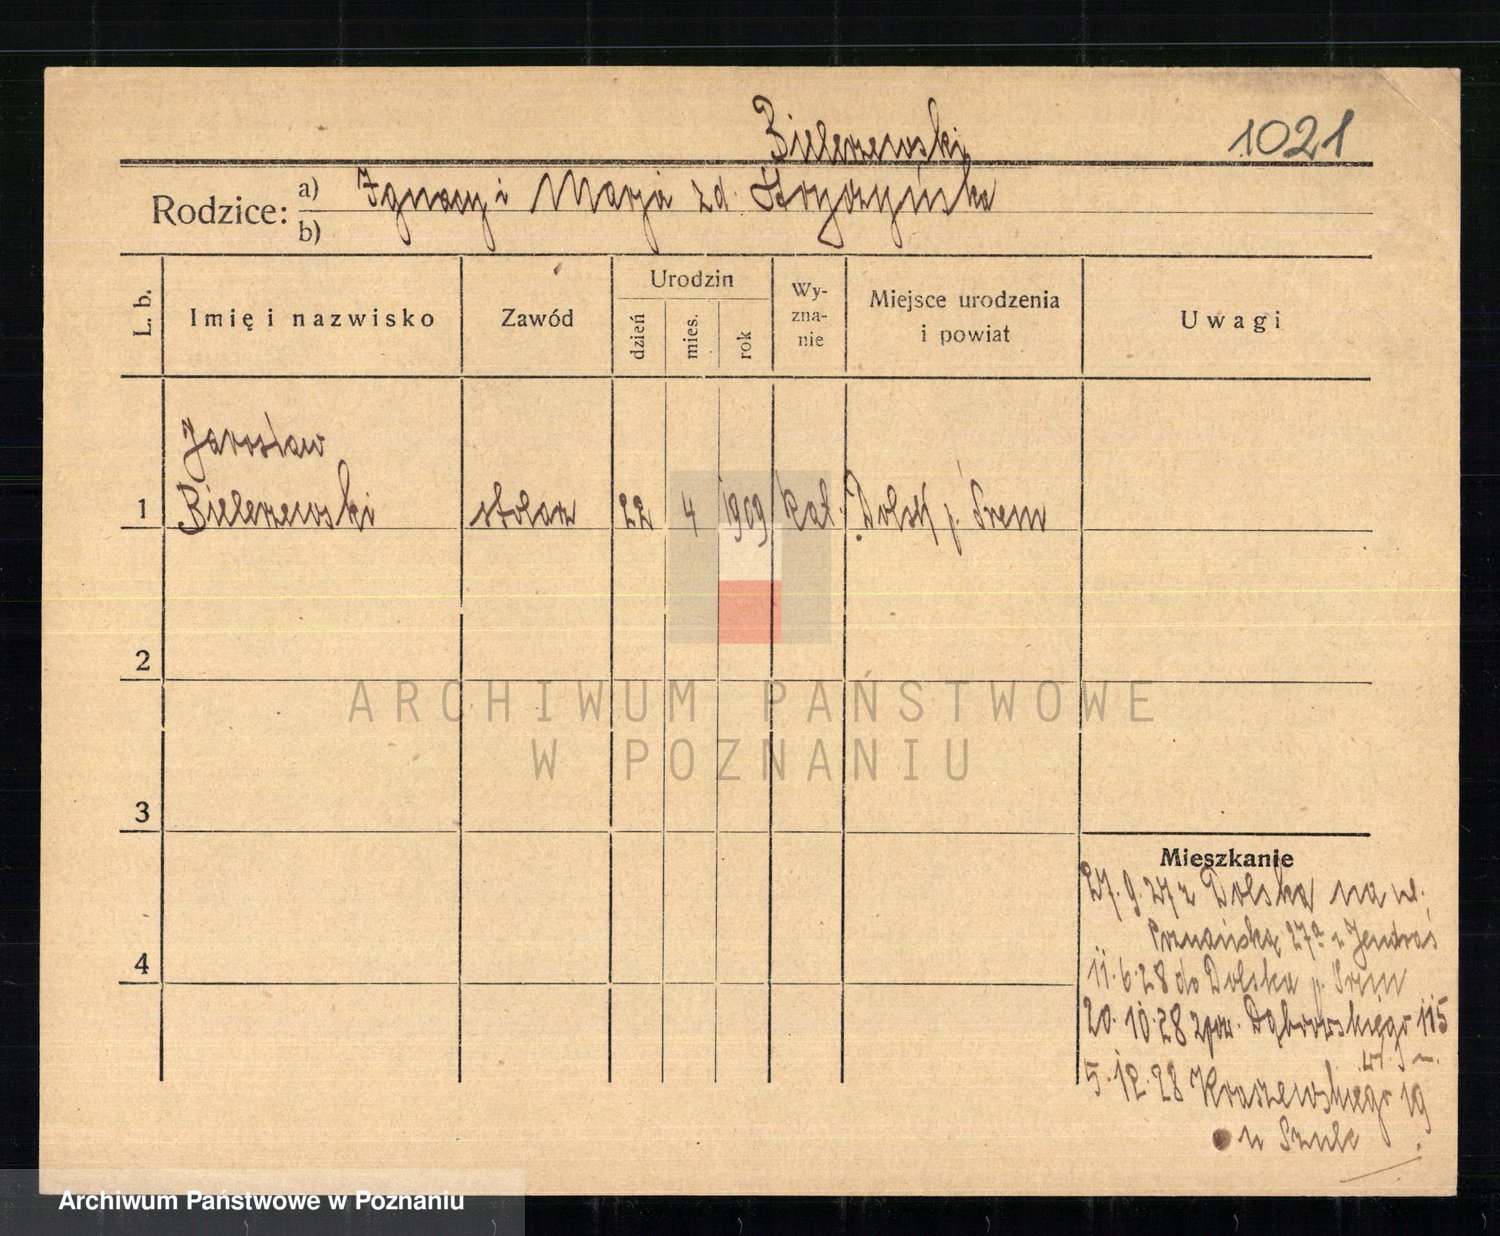 Bielerzewski
1021
Rodzice: a) Ignacy i Marja zd. Stryczyńska
b)
L. b.
Imię i nazwisko
Zawód
Urodzin
dzień
mies.
rok
Wy-
zna-
nie
Miejsce urodzenia
i powiat
Uwagi
Jarosław
1 Bielerzewski stolarz 22 4 1909 kat. Dolsk p. Śrem
2
3
4
ARCHIWUM PAŃSTWOWE
W POZNANIU
Mieszkanie
27.9.27 z Dolska na ul.
Poznańską 27a u Jendraś
11.6.28 do Dolska p. Śrem
20.10.28 Dąbrowskiego 115
5.12.28 Kraszewskiego 19
u Szulc
Archiwum Państwowe w Poznaniu